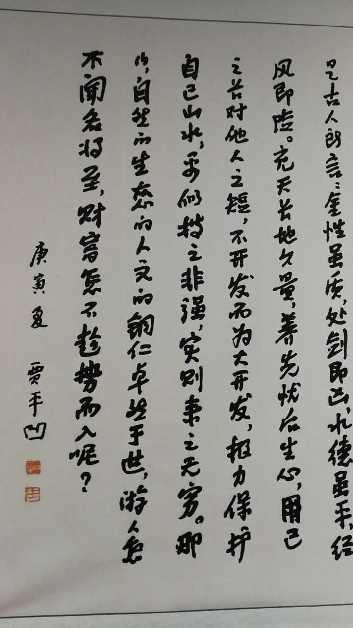 是古人所言：金性虽质，处剑即凶，水德虽平，经
风即险。充天长地久量，养先忧后生心，用己
之长对他人之短，不开发而为大开发，极力保护
自己山水，乎似持之非强，实则秉之无穷。那
么，自然的生态的人文的铜仁卓然于世，游人怎
不闻名将至，财富怎不趋势而入呢？
庚寅夏 贾平凹